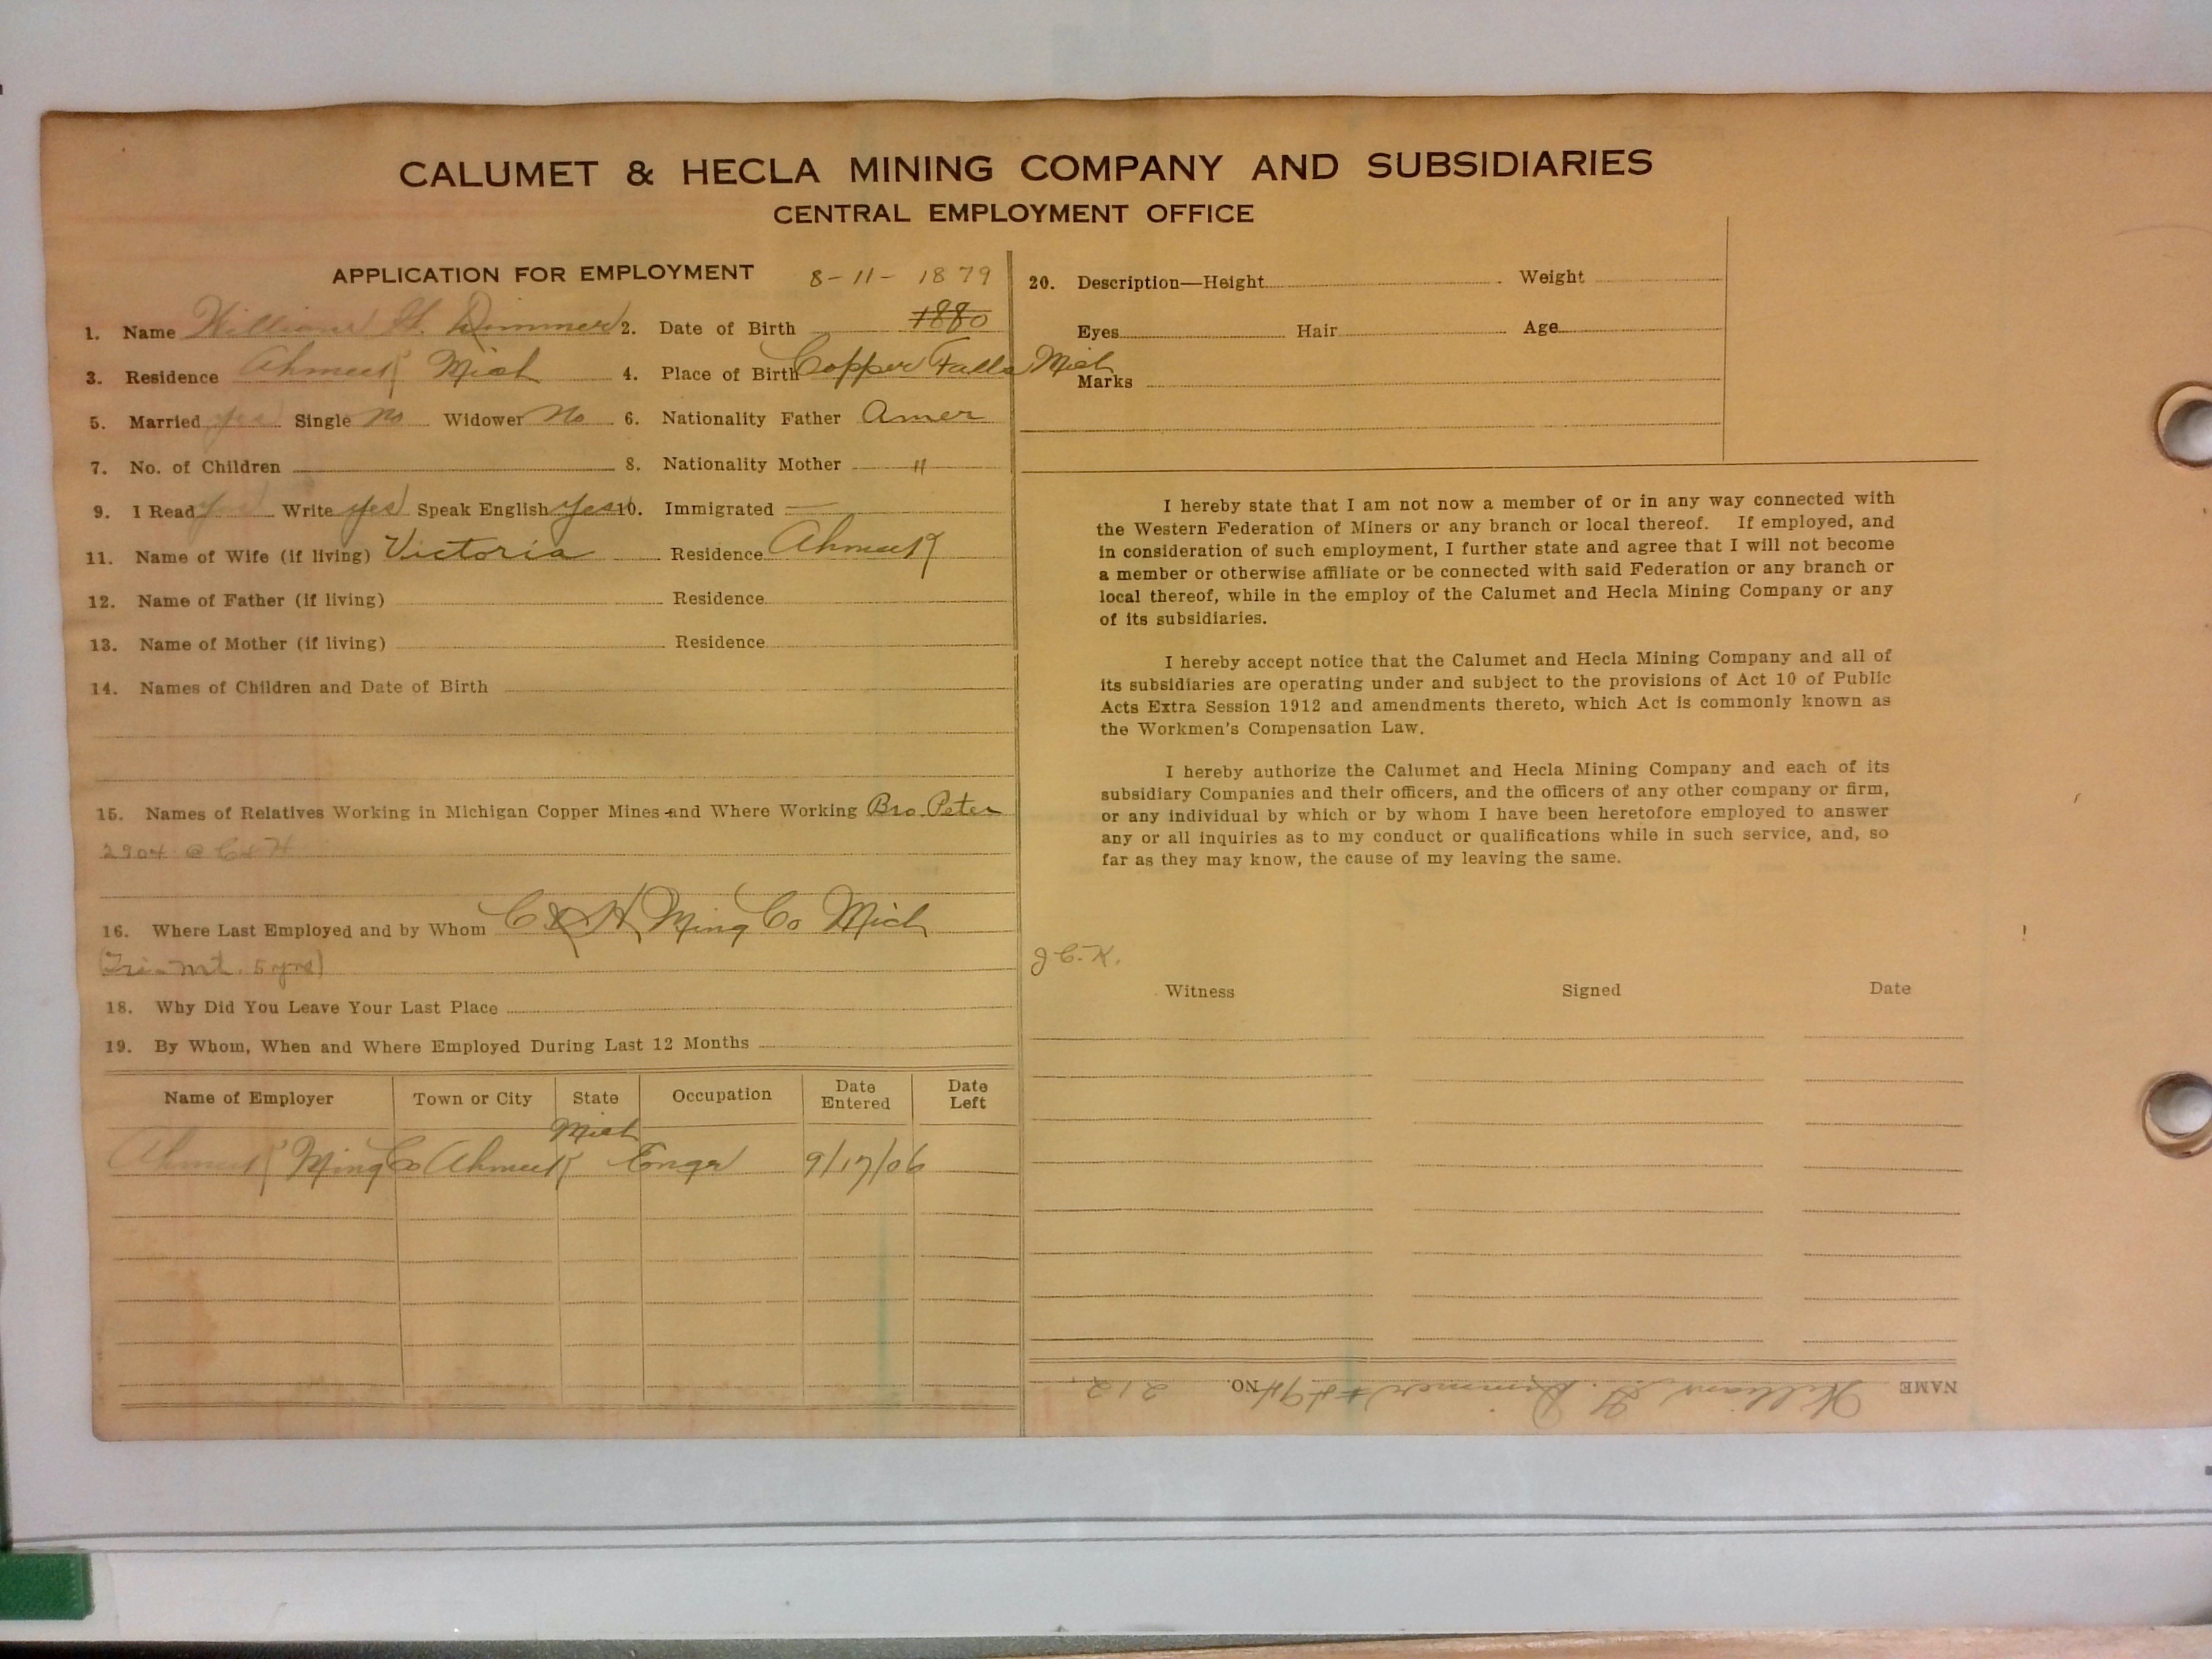 CALUMET & HECLA MINING COMPANY AND SUBSIDIARIES
CENTRAL EMPLOYMENT OFFICE
APPLICATION FOR EMPLOYMENT 8-11-1879
1. Name William H. Dimmer 2. Date of Birth 1880
3. Residence Ahmeek Mich 4. Place of Birth Copper Falls Mich
5. Married yes Single no Widower No 6. Nationality Father Amer
7. No. of Children 8. Nationality Mother "
9. I Read yes Write yes Speak English yes 10. Immigrated —
11. Name of Wife (if living) Victoria Residence Ahmeek
12. Name of Father (if living) Residence
13. Name of Mother (if living) Residence
14. Names of Children and Date of Birth
15. Names of Relatives Working in Michigan Copper Mines and Where Working Bro. Peter
2904 @ C & H
16. Where Last Employed and by Whom C & H Ming Co Mich
(Tri-Mt. 5 yrs)
18. Why Did You Leave Your Last Place
19. By Whom, When and Where Employed During Last 12 Months
Name of Employer Town or City State Occupation Date Entered Date Left
Ahmeek Ming Co Ahmeek Mich Engr 9/17/06
20. Description—Height Weight
Eyes Hair Age
Marks
I hereby state that I am not now a member of or in any way connected with
the Western Federation of Miners or any branch or local thereof. If employed, and
in consideration of such employment, I further state and agree that I will not become
a member or otherwise affiliate or be connected with said Federation or any branch or
local thereof, while in the employ of the Calumet and Hecla Mining Company or any
of its subsidiaries.
I hereby accept notice that the Calumet and Hecla Mining Company and all of
its subsidiaries are operating under and subject to the provisions of Act 10 of Public
Acts Extra Session 1912 and amendments thereto, which Act is commonly known as
the Workmen's Compensation Law.
I hereby authorize the Calumet and Hecla Mining Company and each of its
subsidiary Companies and their officers, and the officers of any other company or firm,
or any individual by which or by whom I have been heretofore employed to answer
any or all inquiries as to my conduct or qualifications while in such service, and, so
far as they may know, the cause of my leaving the same.
J.C.K.
Witness Signed Date
NAME William H. Dimmer NO. 212